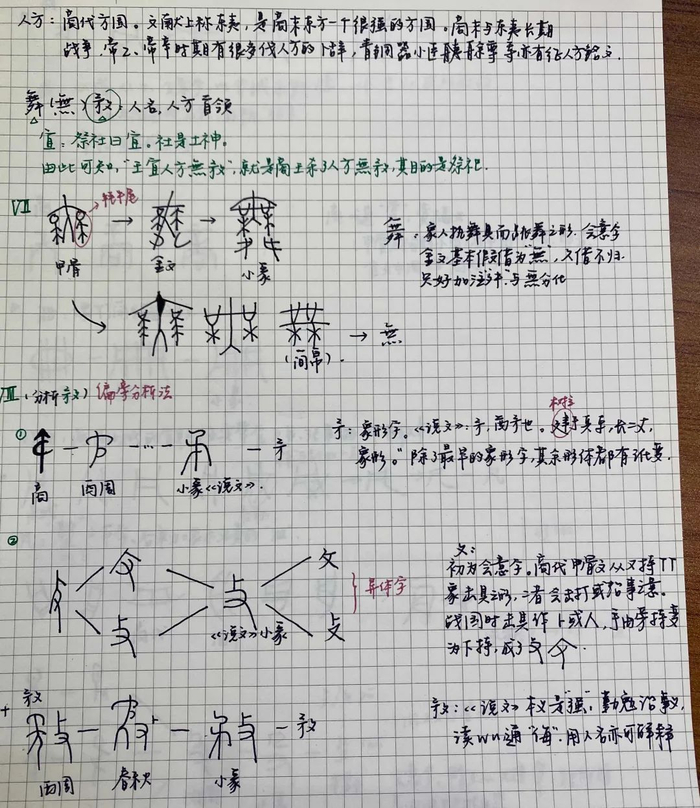 人方：商代方国。文献上称东夷，是商末东方一个很强的方国。商末与东夷长期
战争，帝乙、帝辛时期有很多伐人方的卜辞，青铜器小臣艅犀尊等亦有征人方铭文.
舞(無)敄：人名，人方首领
宜：祭社曰宜。社是土神。
由此可知，"王宜人方無敄"，就是商王杀了人方無敄，其目的是祭祀.
VII
牦牛尾
甲骨
金文
小篆
舞：象人执舞具而起舞之形. 会意字
金文基本假借为"無"，久借不归.
只好加注"舛"与無分化
(简帛).
無
VIII (分析敄) 偏旁分析法
① 商
西周
小篆《说文》.
矛
矛：象形字。《说文》：矛，酋矛也。建于兵车，长二丈，
象形。"除了最早的象形字，其余形体都有讹变.
②
《说文》小篆
攵
攴
异体字
攵：
初为会意字。商代甲骨文从又持
象出具之形，二者会击打或指事之意.
战国时出具作卜或人，手由旁持变
为下持，成了
敄
西周
春秋
小篆
敄
敄：《说文》本义是"强"，勤勉治事，
读wu通"侮".用人名亦可解释